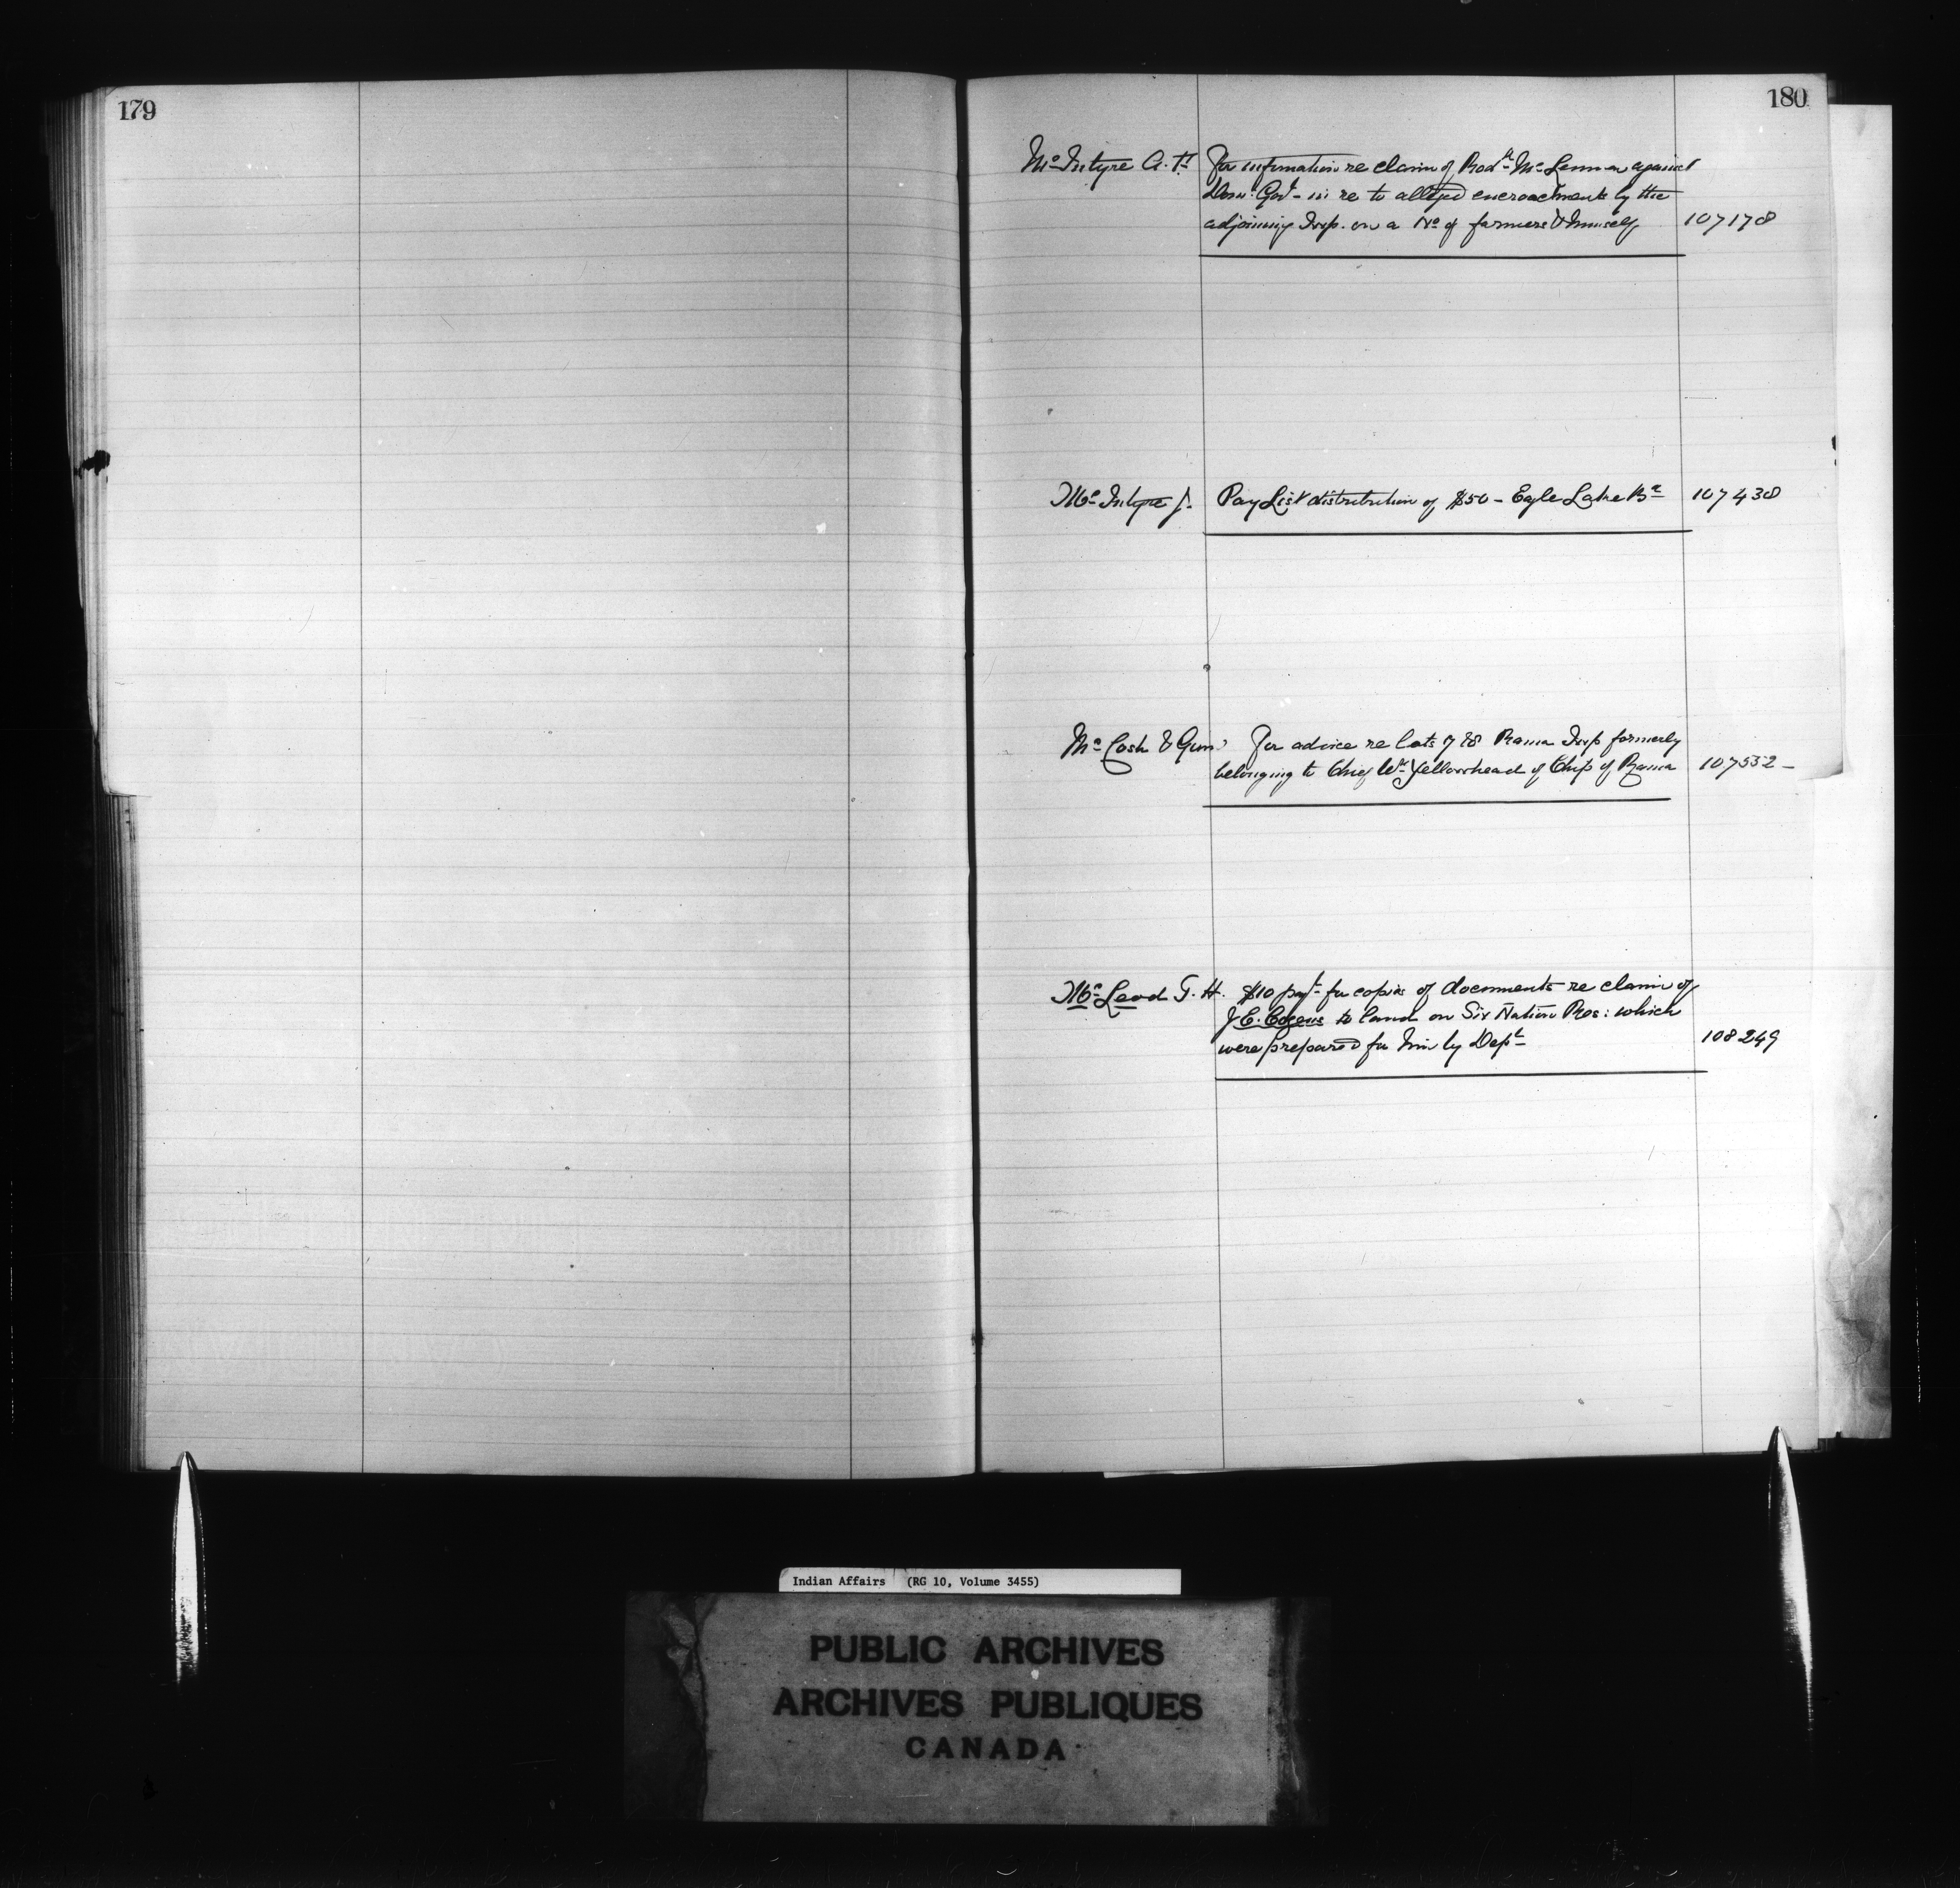 179
180
McIntyre A. F. For information re claim of Rodk McLennan against
Dom: Govt - in re to alleged encroachments by the
adjoining Twp. on a No of farmers & himself 107178
McIntyre J. Pay List distribution of $50 - Eagle Lake Bd 107438
McCosh & Gunn For advice re lots 7 & 8 Rama Twp formerly
belonging to Chief Wm Yellowhead of Chip of Rama 107532 -
McLeod T. H. $10 payt for copies of documents re claim of
J C. to land on Six Nation Res: which
were prepared for him by Dept 108249
Indian Affairs (RG 10, Volume 3455)
PUBLIC ARCHIVES
ARCHIVES PUBLIQUES
CANADA